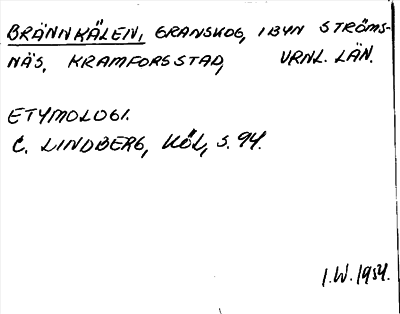 BRÄNNKÄLEN, GRANSKOG, I BYN STRÖMS-
NÄS, KRAMFORS STAD, VRNL. LÄN.
ETYMOLOGI.
C. LINDBERG, KÖL, S. 94.
I.W. 1954.